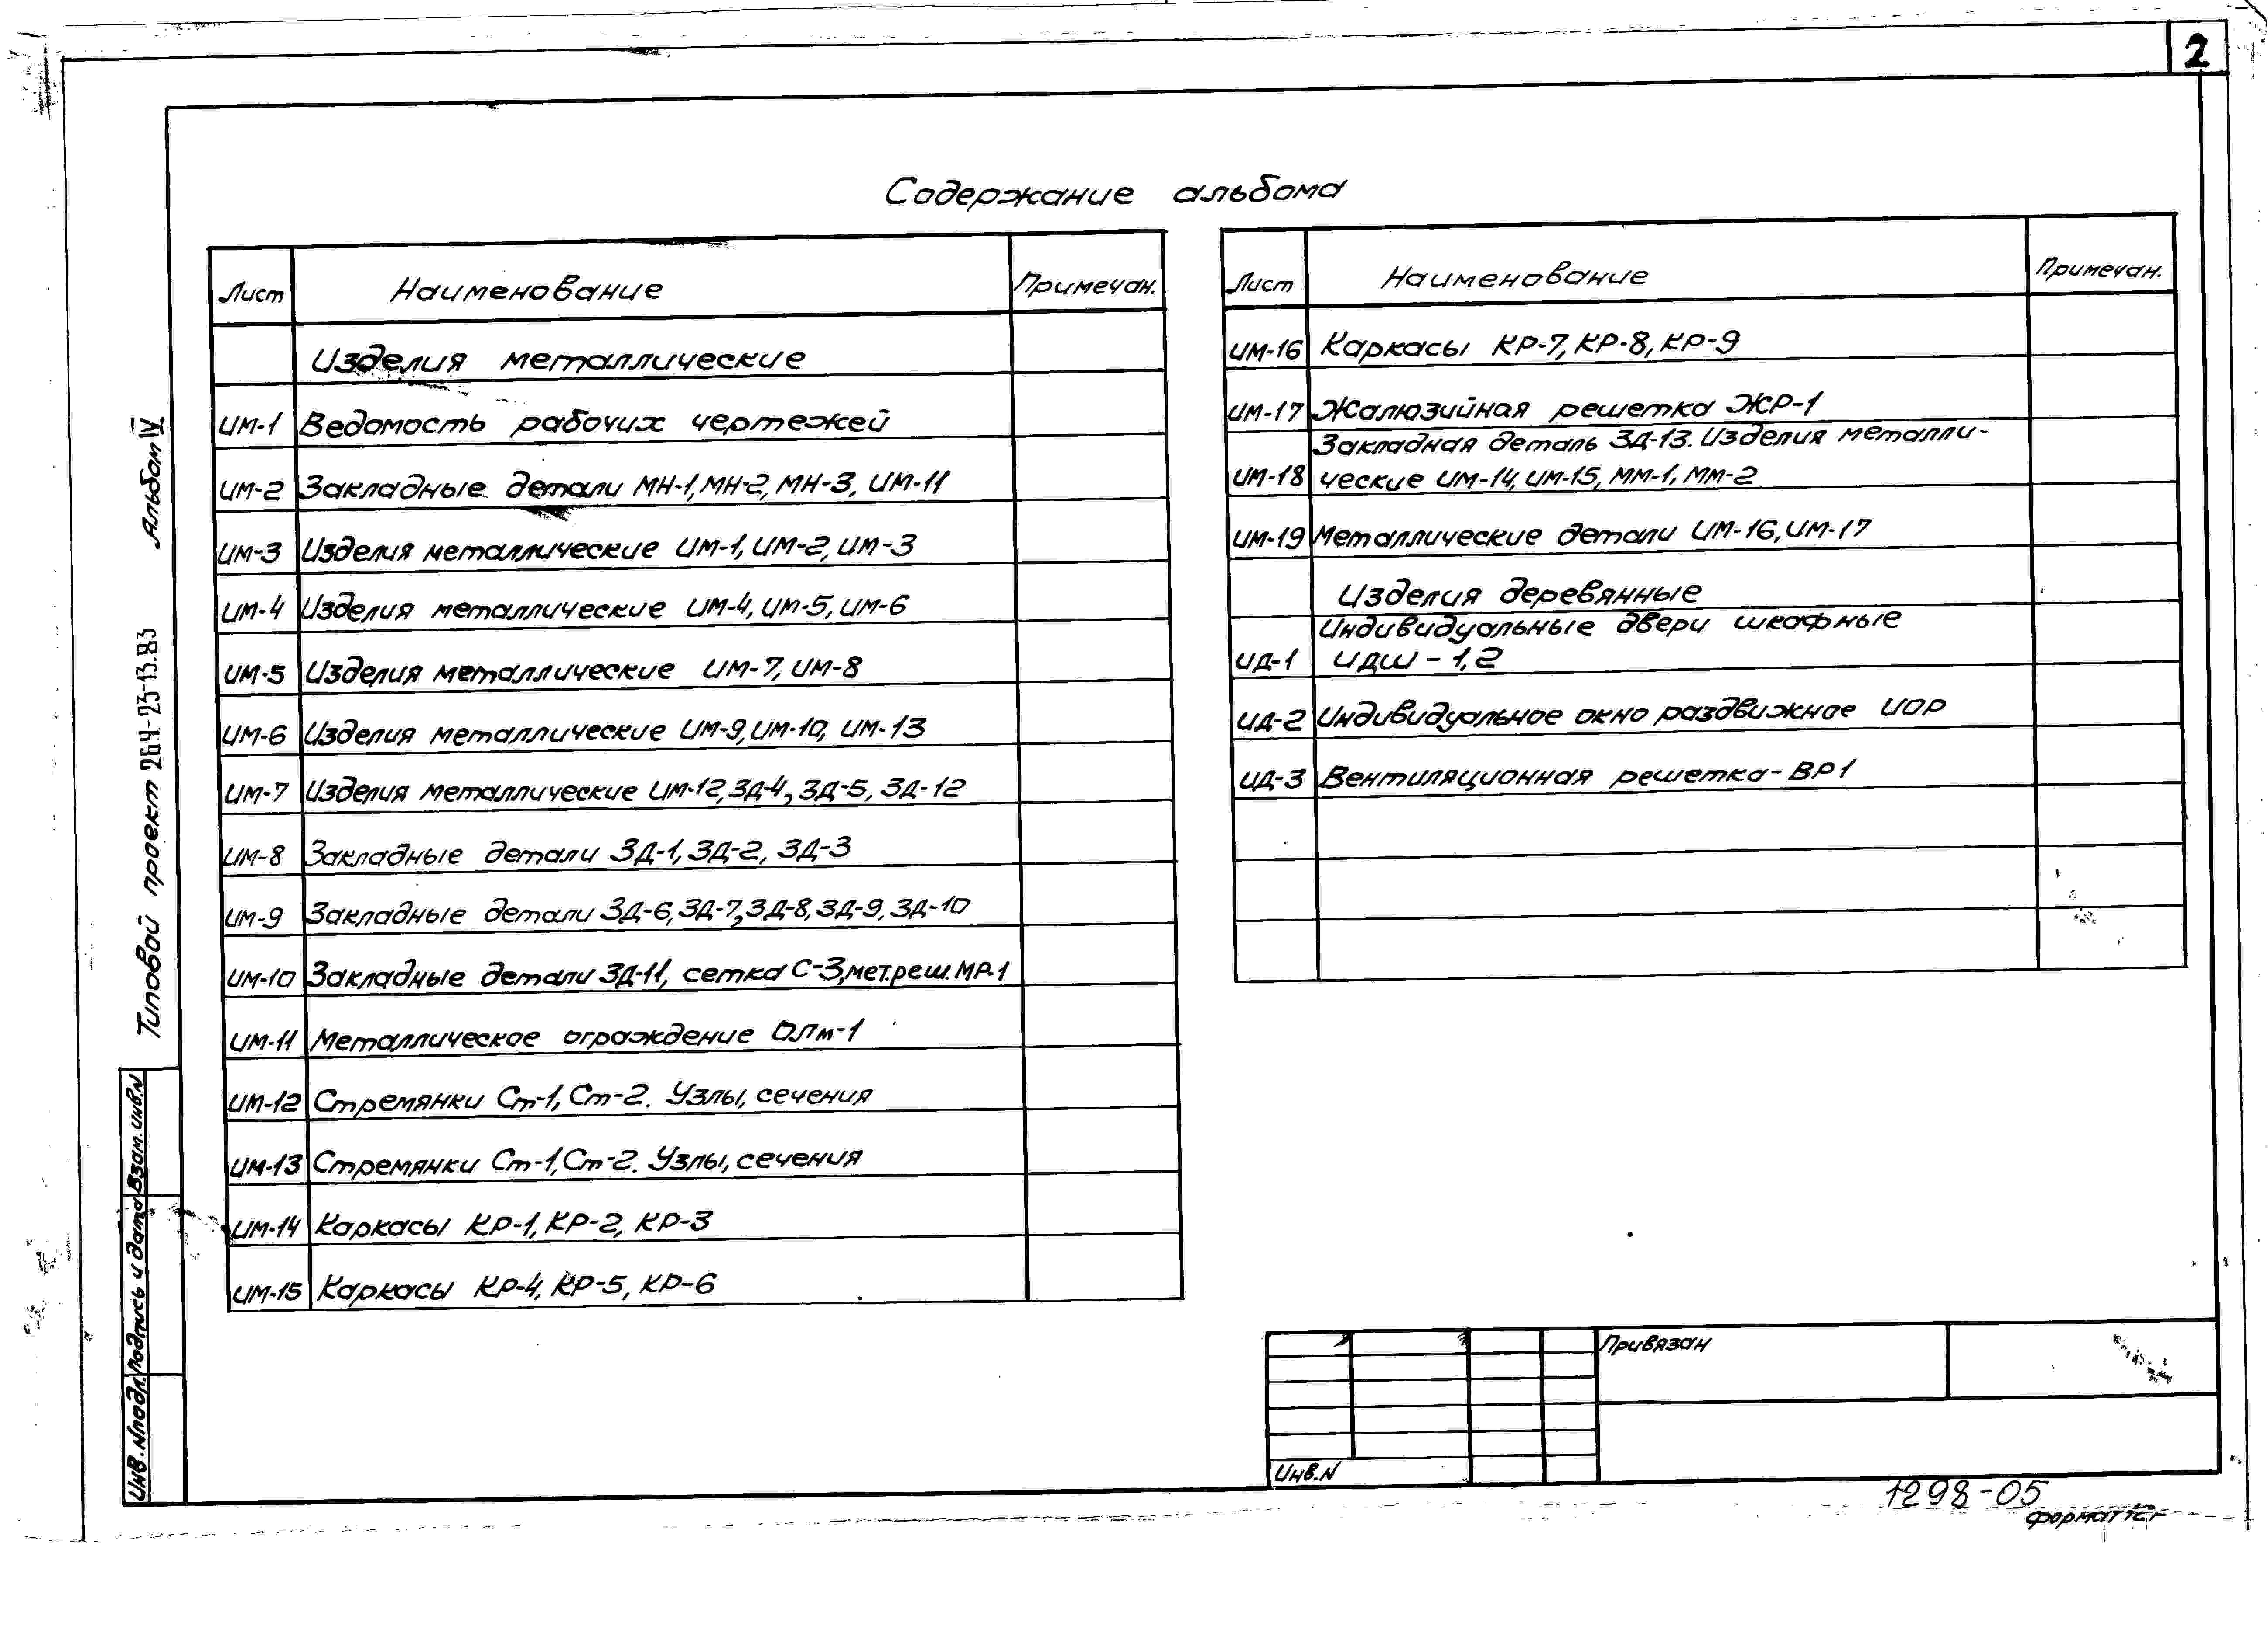 2
Содержание альбома
Лист Наименование Примечан.
Изделия металлические
ИМ-1 Ведомость рабочих чертежей
ИМ-2 Закладные детали МН-1, МН-2, МН-3, ИМ-11
ИМ-3 Изделия металлические ИМ-1, ИМ-2, ИМ-3
ИМ-4 Изделия металлические ИМ-4, ИМ-5, ИМ-6
ИМ-5 Изделия металлические ИМ-7, ИМ-8
ИМ-6 Изделия металлические ИМ-9, ИМ-10, ИМ-13
ИМ-7 Изделия металлические ИМ-12, ЗД-4, ЗД-5, ЗД-12
ИМ-8 Закладные детали ЗД-1, ЗД-2, ЗД-3
ИМ-9 Закладные детали ЗД-6, ЗД-7, ЗД-8, ЗД-9, ЗД-10
ИМ-10 Закладные детали ЗД-11, сетка С-3, мет.реш. МР-1
ИМ-11 Металлическое ограждение ОЛм-1
ИМ-12 Стремянки Ст-1, Ст-2. Узлы, сечения
ИМ-13 Стремянки Ст-1, Ст-2. Узлы, сечения
ИМ-14 Каркасы КР-1, КР-2, КР-3
ИМ-15 Каркасы КР-4, КР-5, КР-6
Лист Наименование Примечан.
ИМ-16 Каркасы КР-7, КР-8, КР-9
ИМ-17 Жалюзийная решетка ЖР-1
Закладная деталь ЗД-13. Изделия металли-
ИМ-18 ческие ИМ-14, ИМ-15, ММ-1, ММ-2
ИМ-19 Металлические детали ИМ-16, ИМ-17
Изделия деревянные
Индивидуальные двери шкафные
ИД-1 ИДШ-1,2
ИД-2 Индивидуальное окно раздвижное ИОР
ИД-3 Вентиляционная решетка-ВР1
Типовой проект 264-23-13.83 Альбом IV
Инв.Nподл. Подпись и дата Взам.инв.N
Привязан
Инв.N
1298-05
формат 12г